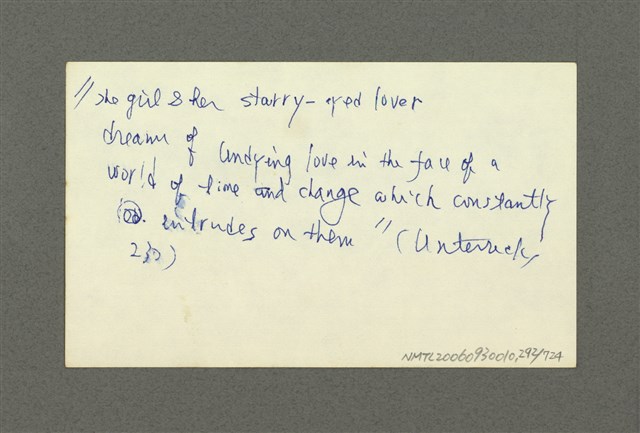 "The girl & her starry-eyed lover
dream of undying love in the face of a
world of time and change which constantly
intrudes on them" (Unterecker,
230)
NMTL20060930010,292/724